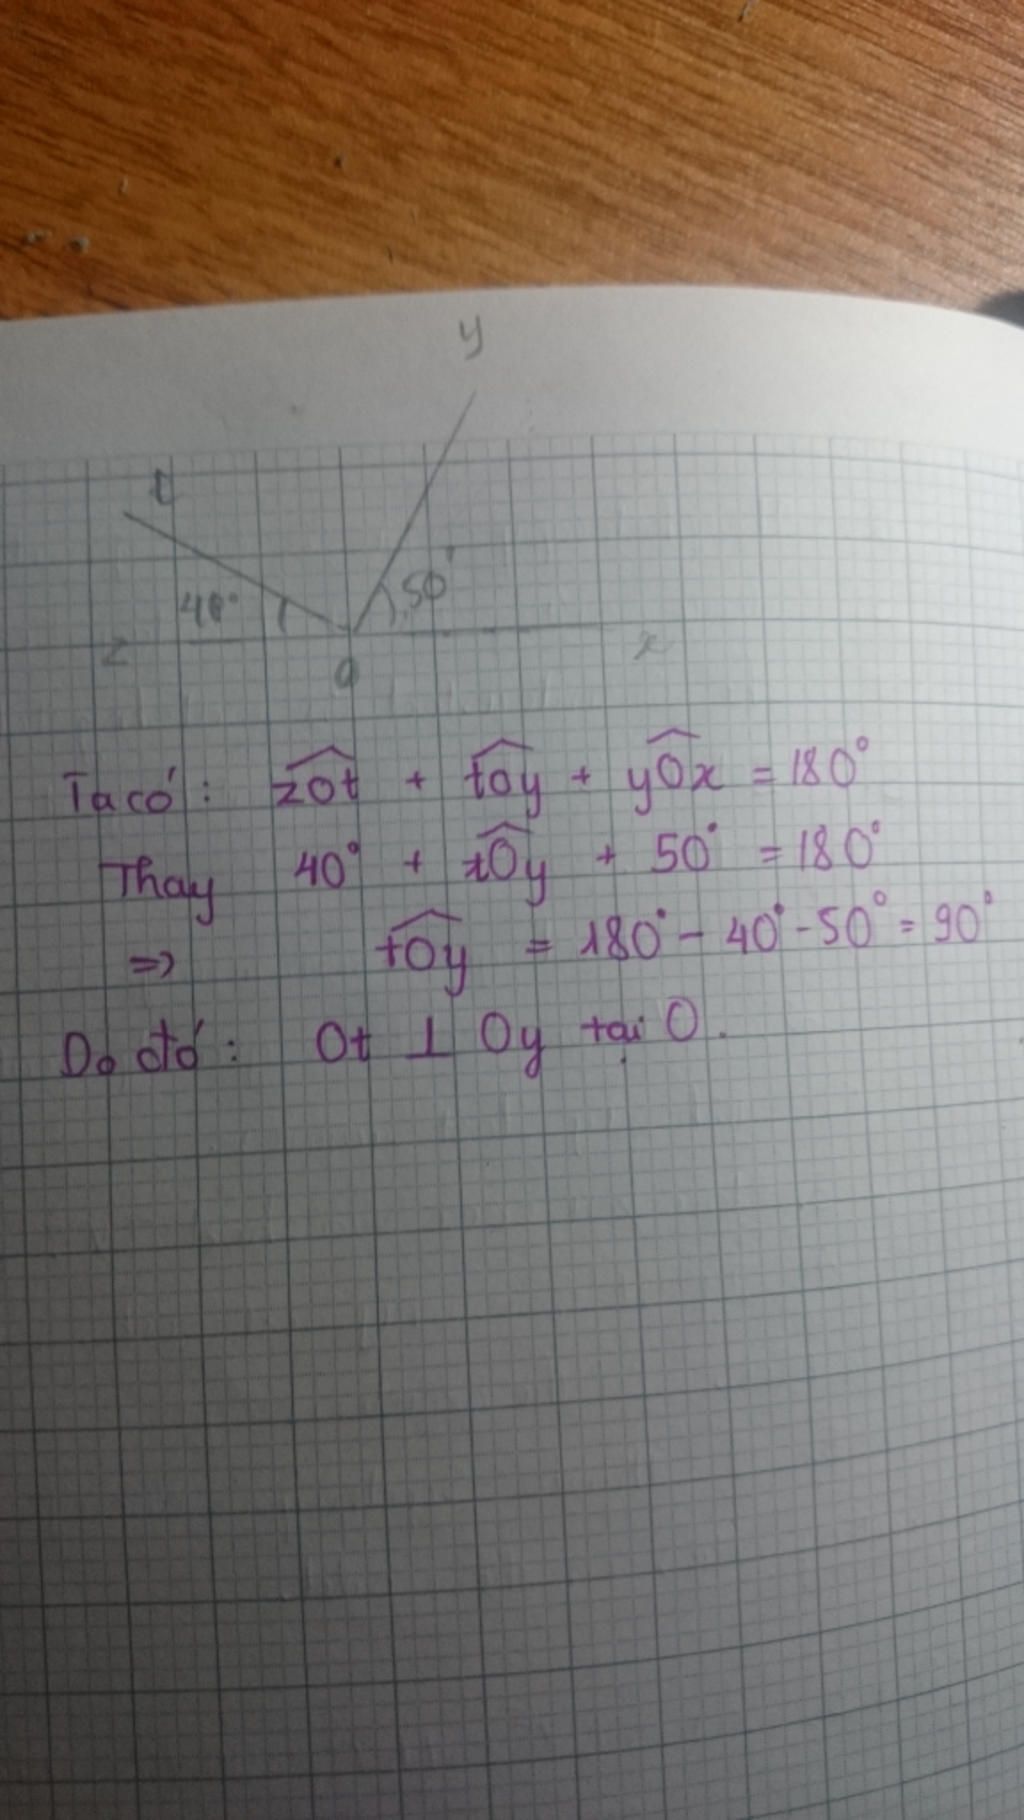 y
t
40° 50°
z O x
Ta có: zOt + tOy + yOx = 180°
Thay 40° + tOy + 50° = 180°
=> tOy = 180° - 40° - 50° = 90°
Do đó: Ot ⊥ Oy tại O.